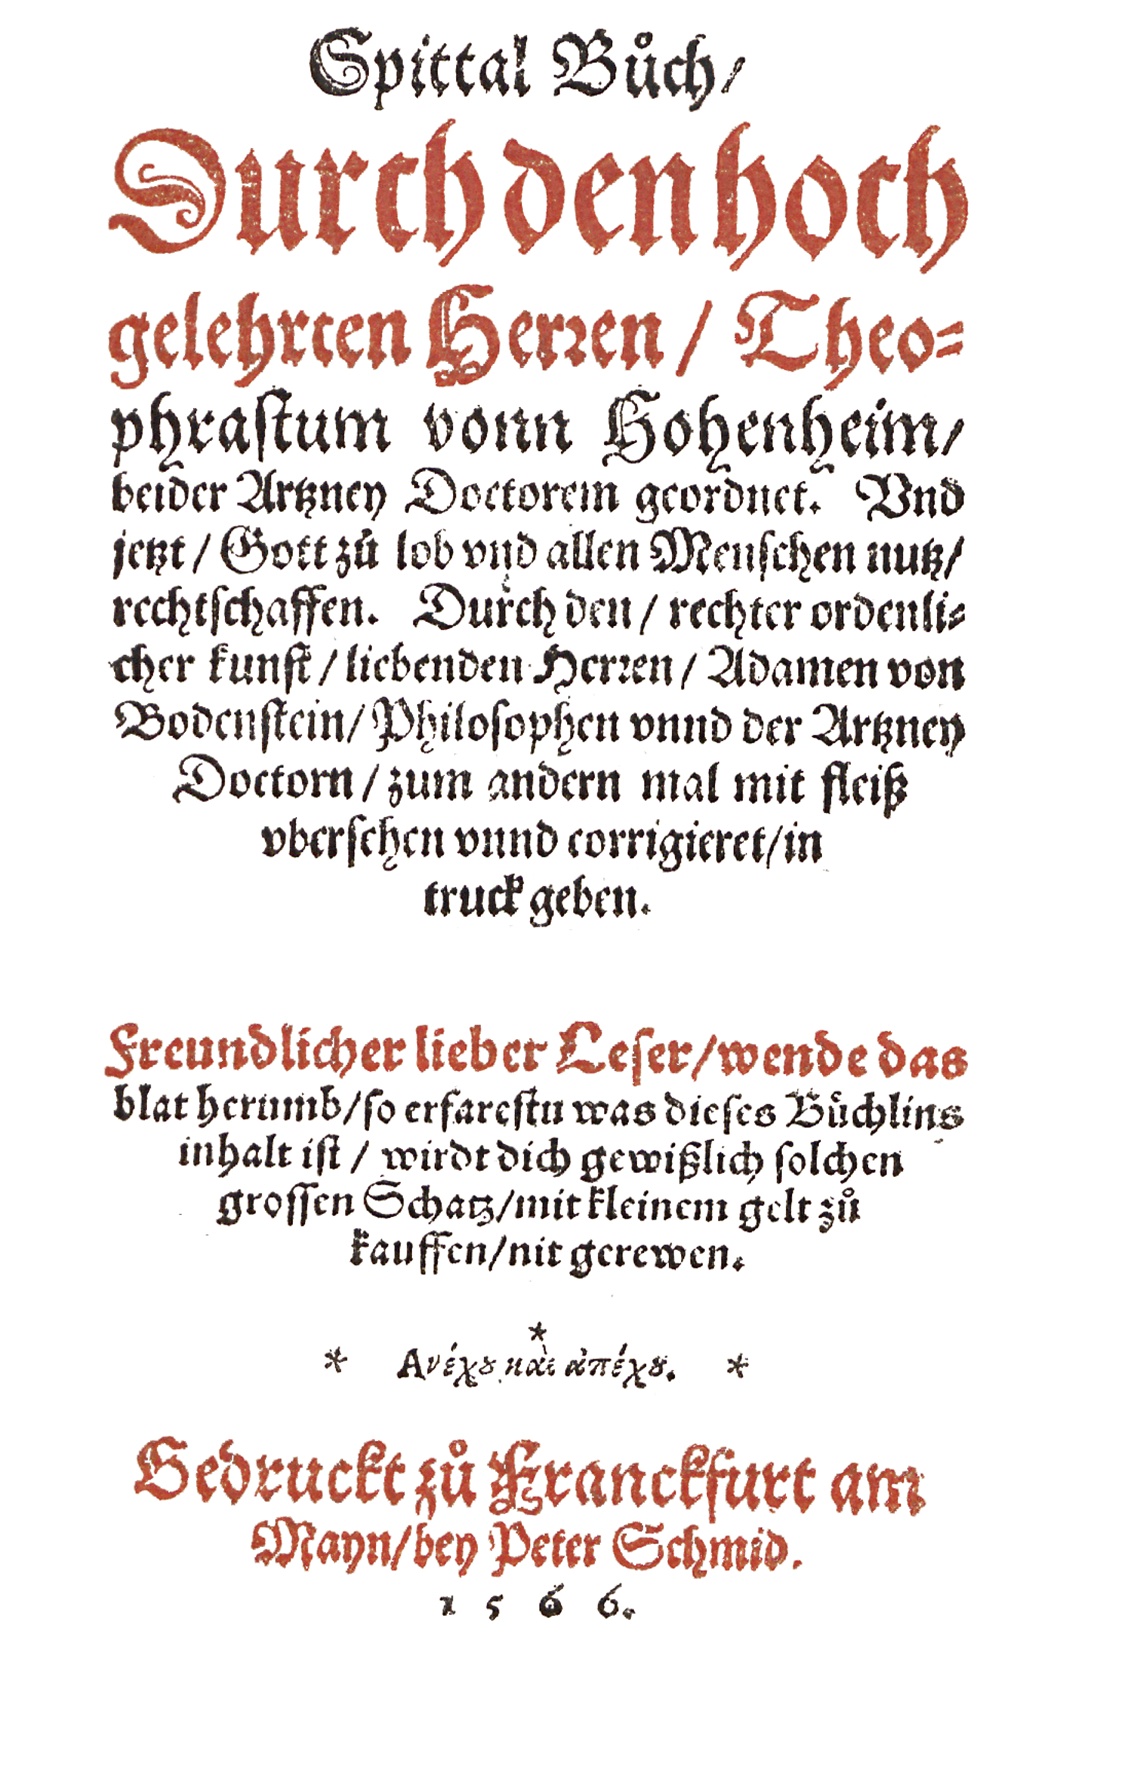 Spittal Bůch/
Durch den hoch
gelehrten Herren / Theo=
phrastum vonn Hohenheim/
beider Artzney Doctorem geordnet. Vnd
jetzt / Gott zů lob vnd allen Menschen nutz/
rechtschaffen. Durch den / rechter ordenli=
cher kunst / liebenden Herren / Adamen von
Bodenstein/ Philosophen vnnd der Artzney
Doctorn / zum andern mal mit fleiß
vbersehen vnnd corrigieret/in
truck geben.
Freundlicher lieber Leser/wende das
blat herumb/so erfarestu was dieses Bůchlins
inhalt ist / wirdt dich gewißlich solchen
grossen Schatz/mit kleinem gelt zů
kauffen/nit gerewen.
*
* Ανέχου καὶ ἀπέχου. *
Gedruckt zů Franckfurt am
Mayn/bey Peter Schmid.
1 5 6 6.